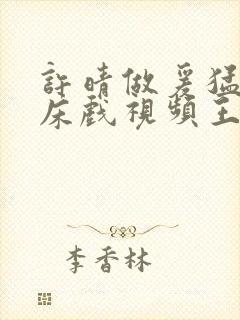 許晴做爰猛
床戲視頻主
李香林